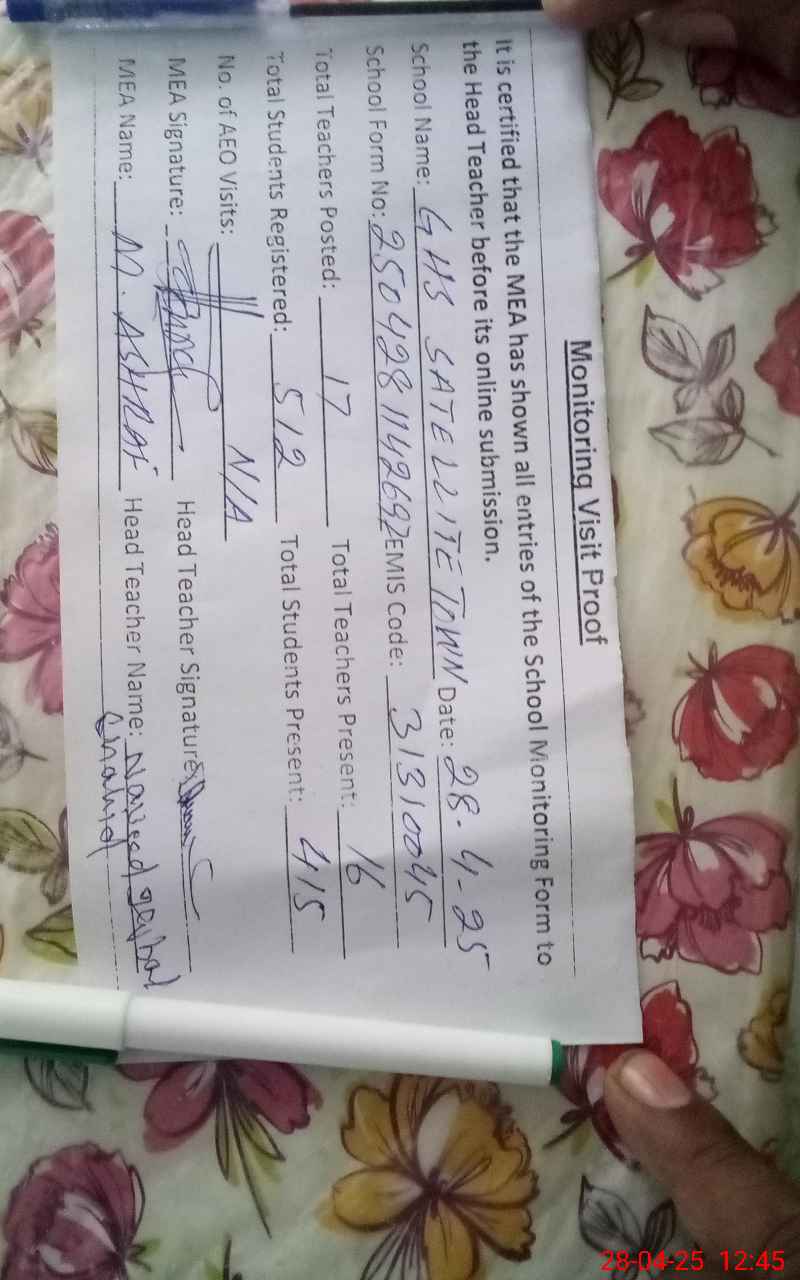 Monitoring Visit Proof
It is certified that the MEA has shown all entries of the School Monitoring Form to
the Head Teacher before its online submission.
School Name: GHS SATELLITE TOWN Date: 28-4-25
School Form No: 250428114269 EMIS Code: 31310045
Total Teachers Posted: 17 Total Teachers Present: 16
Total Students Registered: 512 Total Students Present: 415
No. of AEO Visits: N/A
MEA Signature: Head Teacher Signature:
MEA Name: M. ASHRAF Head Teacher Name:
28-04-25 12:45